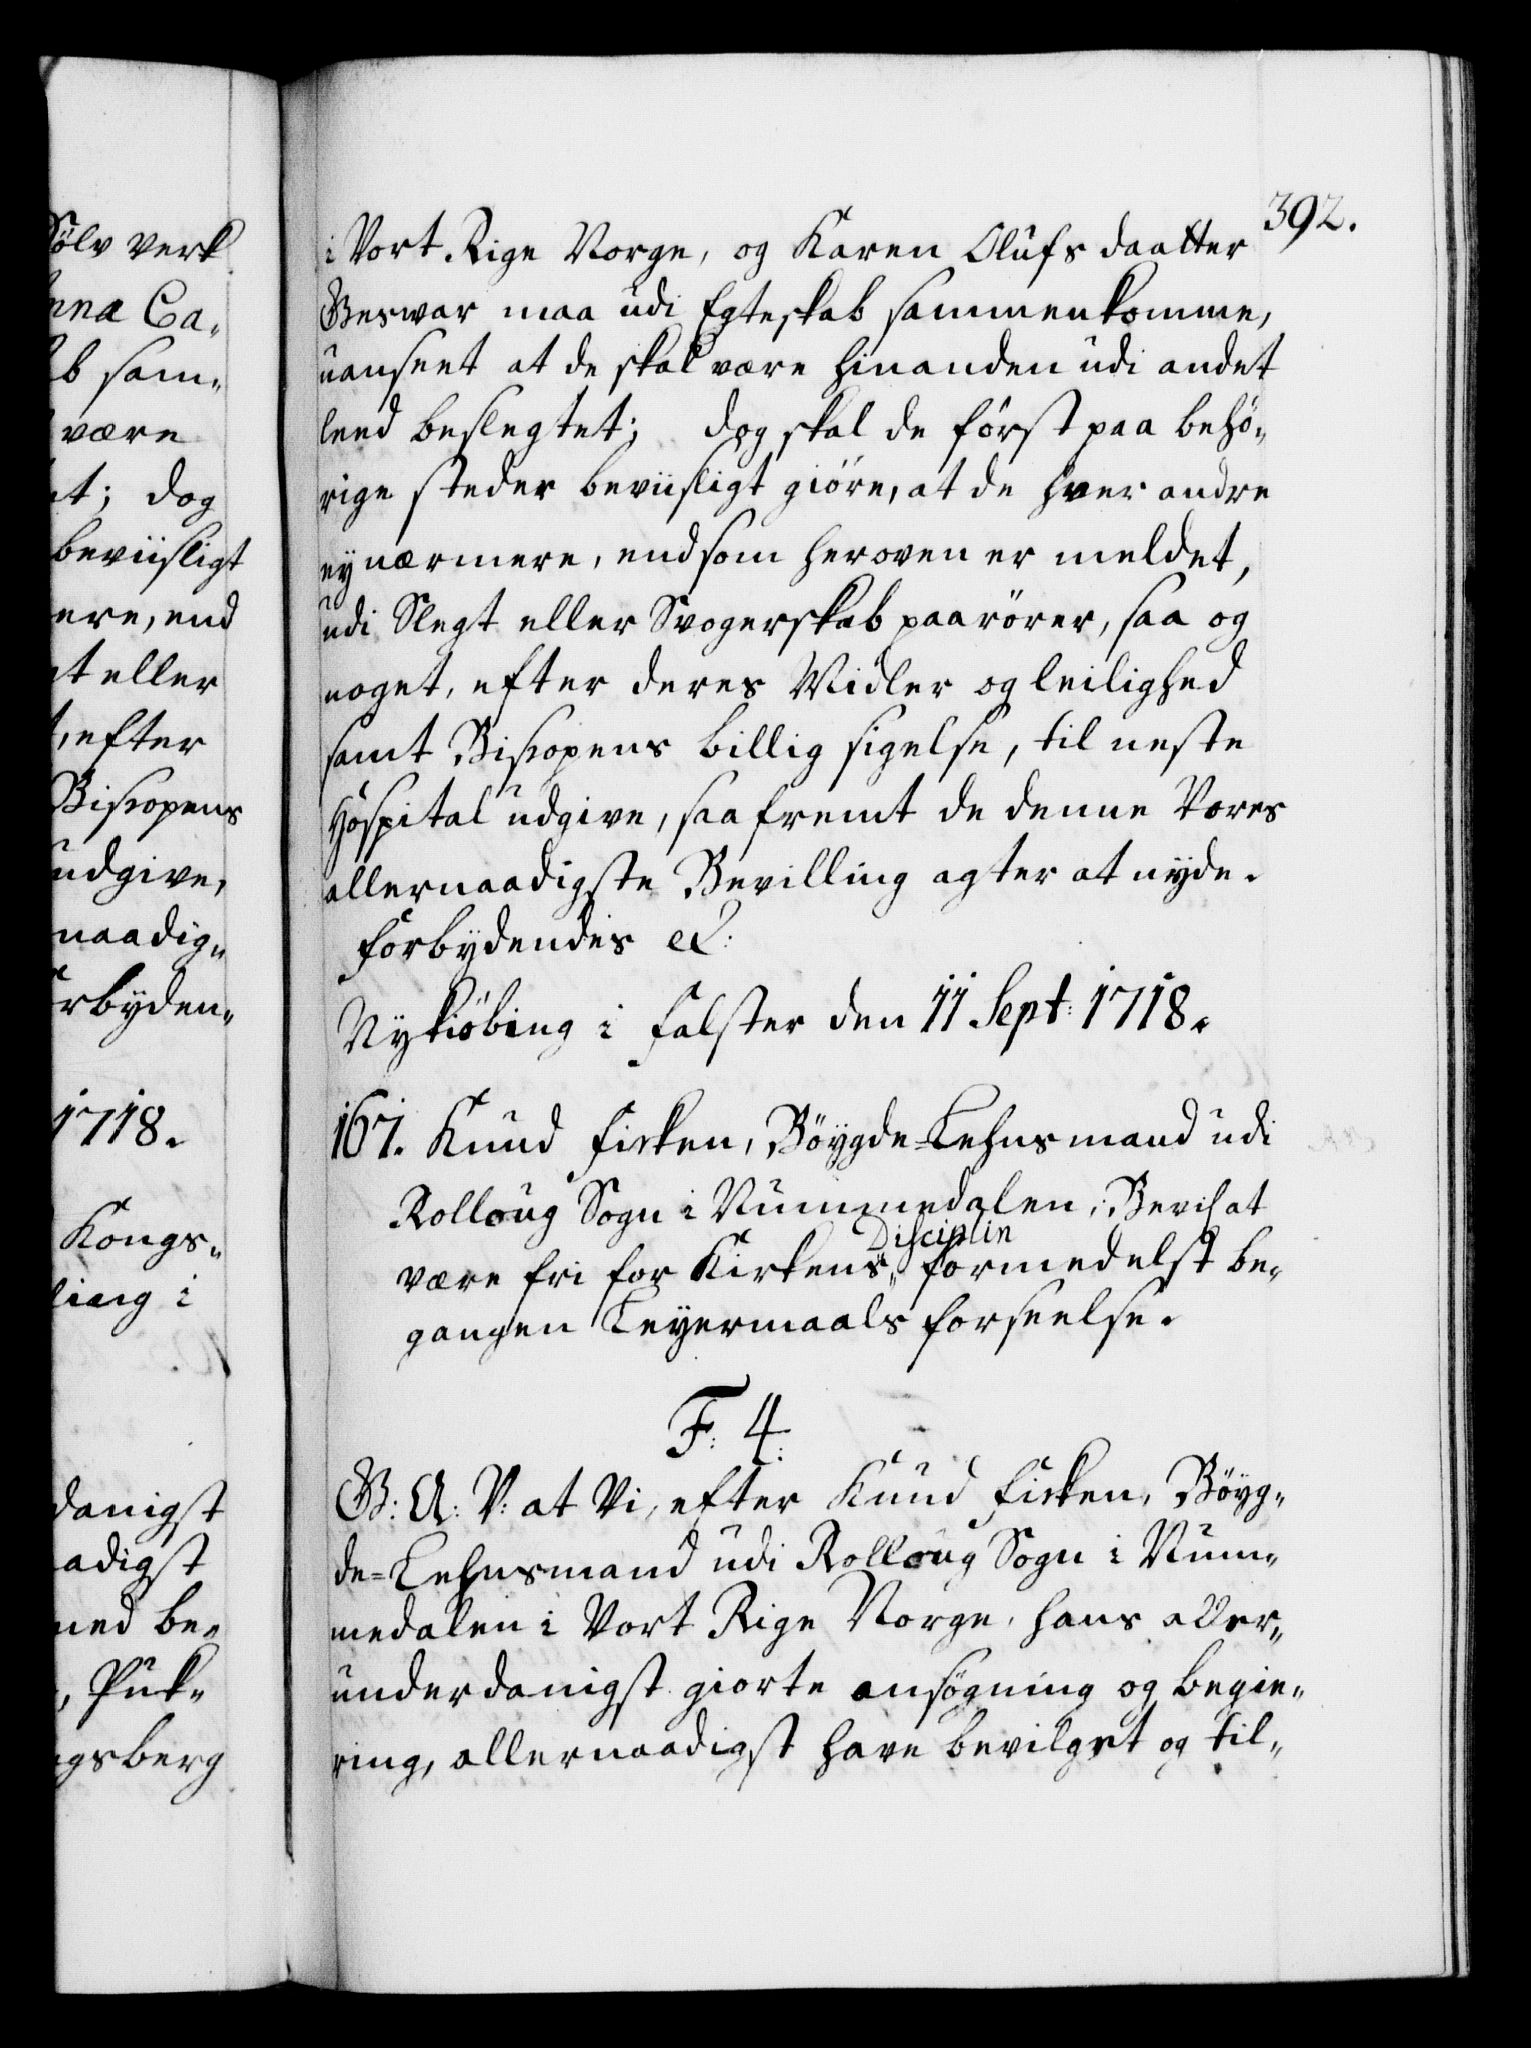 Sölv verk
nna Ca„
b sam„
være
t; dog
beviisligt
ere, end
t eller
, efter
Biscopens
udgive,
naadig„
rbyden„
1718.
Kongs„
ling i
danigst
adigst
ned be„
, Puk„
gsberg
392.
i Vort Rige Norge, og Karen Olufs daatter
Gieswar maa udi Egteskab sammenkomme,
uanseet at de skal være hinanden udi andet
leed beslegtet; dog skal de först paa behö„
rige steder beviisligt giöre, at de hver andre
ey nærmere, end som heroven er meldet,
udi Slegt eller Svogerskab paarörer, saa og
noget, efter deres Midler og leilighed
samt Biscopens billig sigelse, til neste
Hospital udgive, saafremt de denne Vores
allernaadigste Bevilling agter at nyde.
Forbydendes etc:
Nykiöbing i Falster den 11 Sept: 1718.
167. Knud Fisken, Böygde-Lehnsmand udi
Rolloug Sogn i Nummedalen, Bevil: at
Disciplin
være fri for Kirkens„ formedelst be„
gangen Leyermaals forseelse.
F: 4.
G: A: V: at Vi, efter Knud Fisken, Böyg„
de=Lehnsmand udi Rolloug Sogn i Num„
medalen i Vort Rige Norge, hans aller„
underdanigst giorte ansögning og begie„
ring, allernaadigst have bevilget og til„